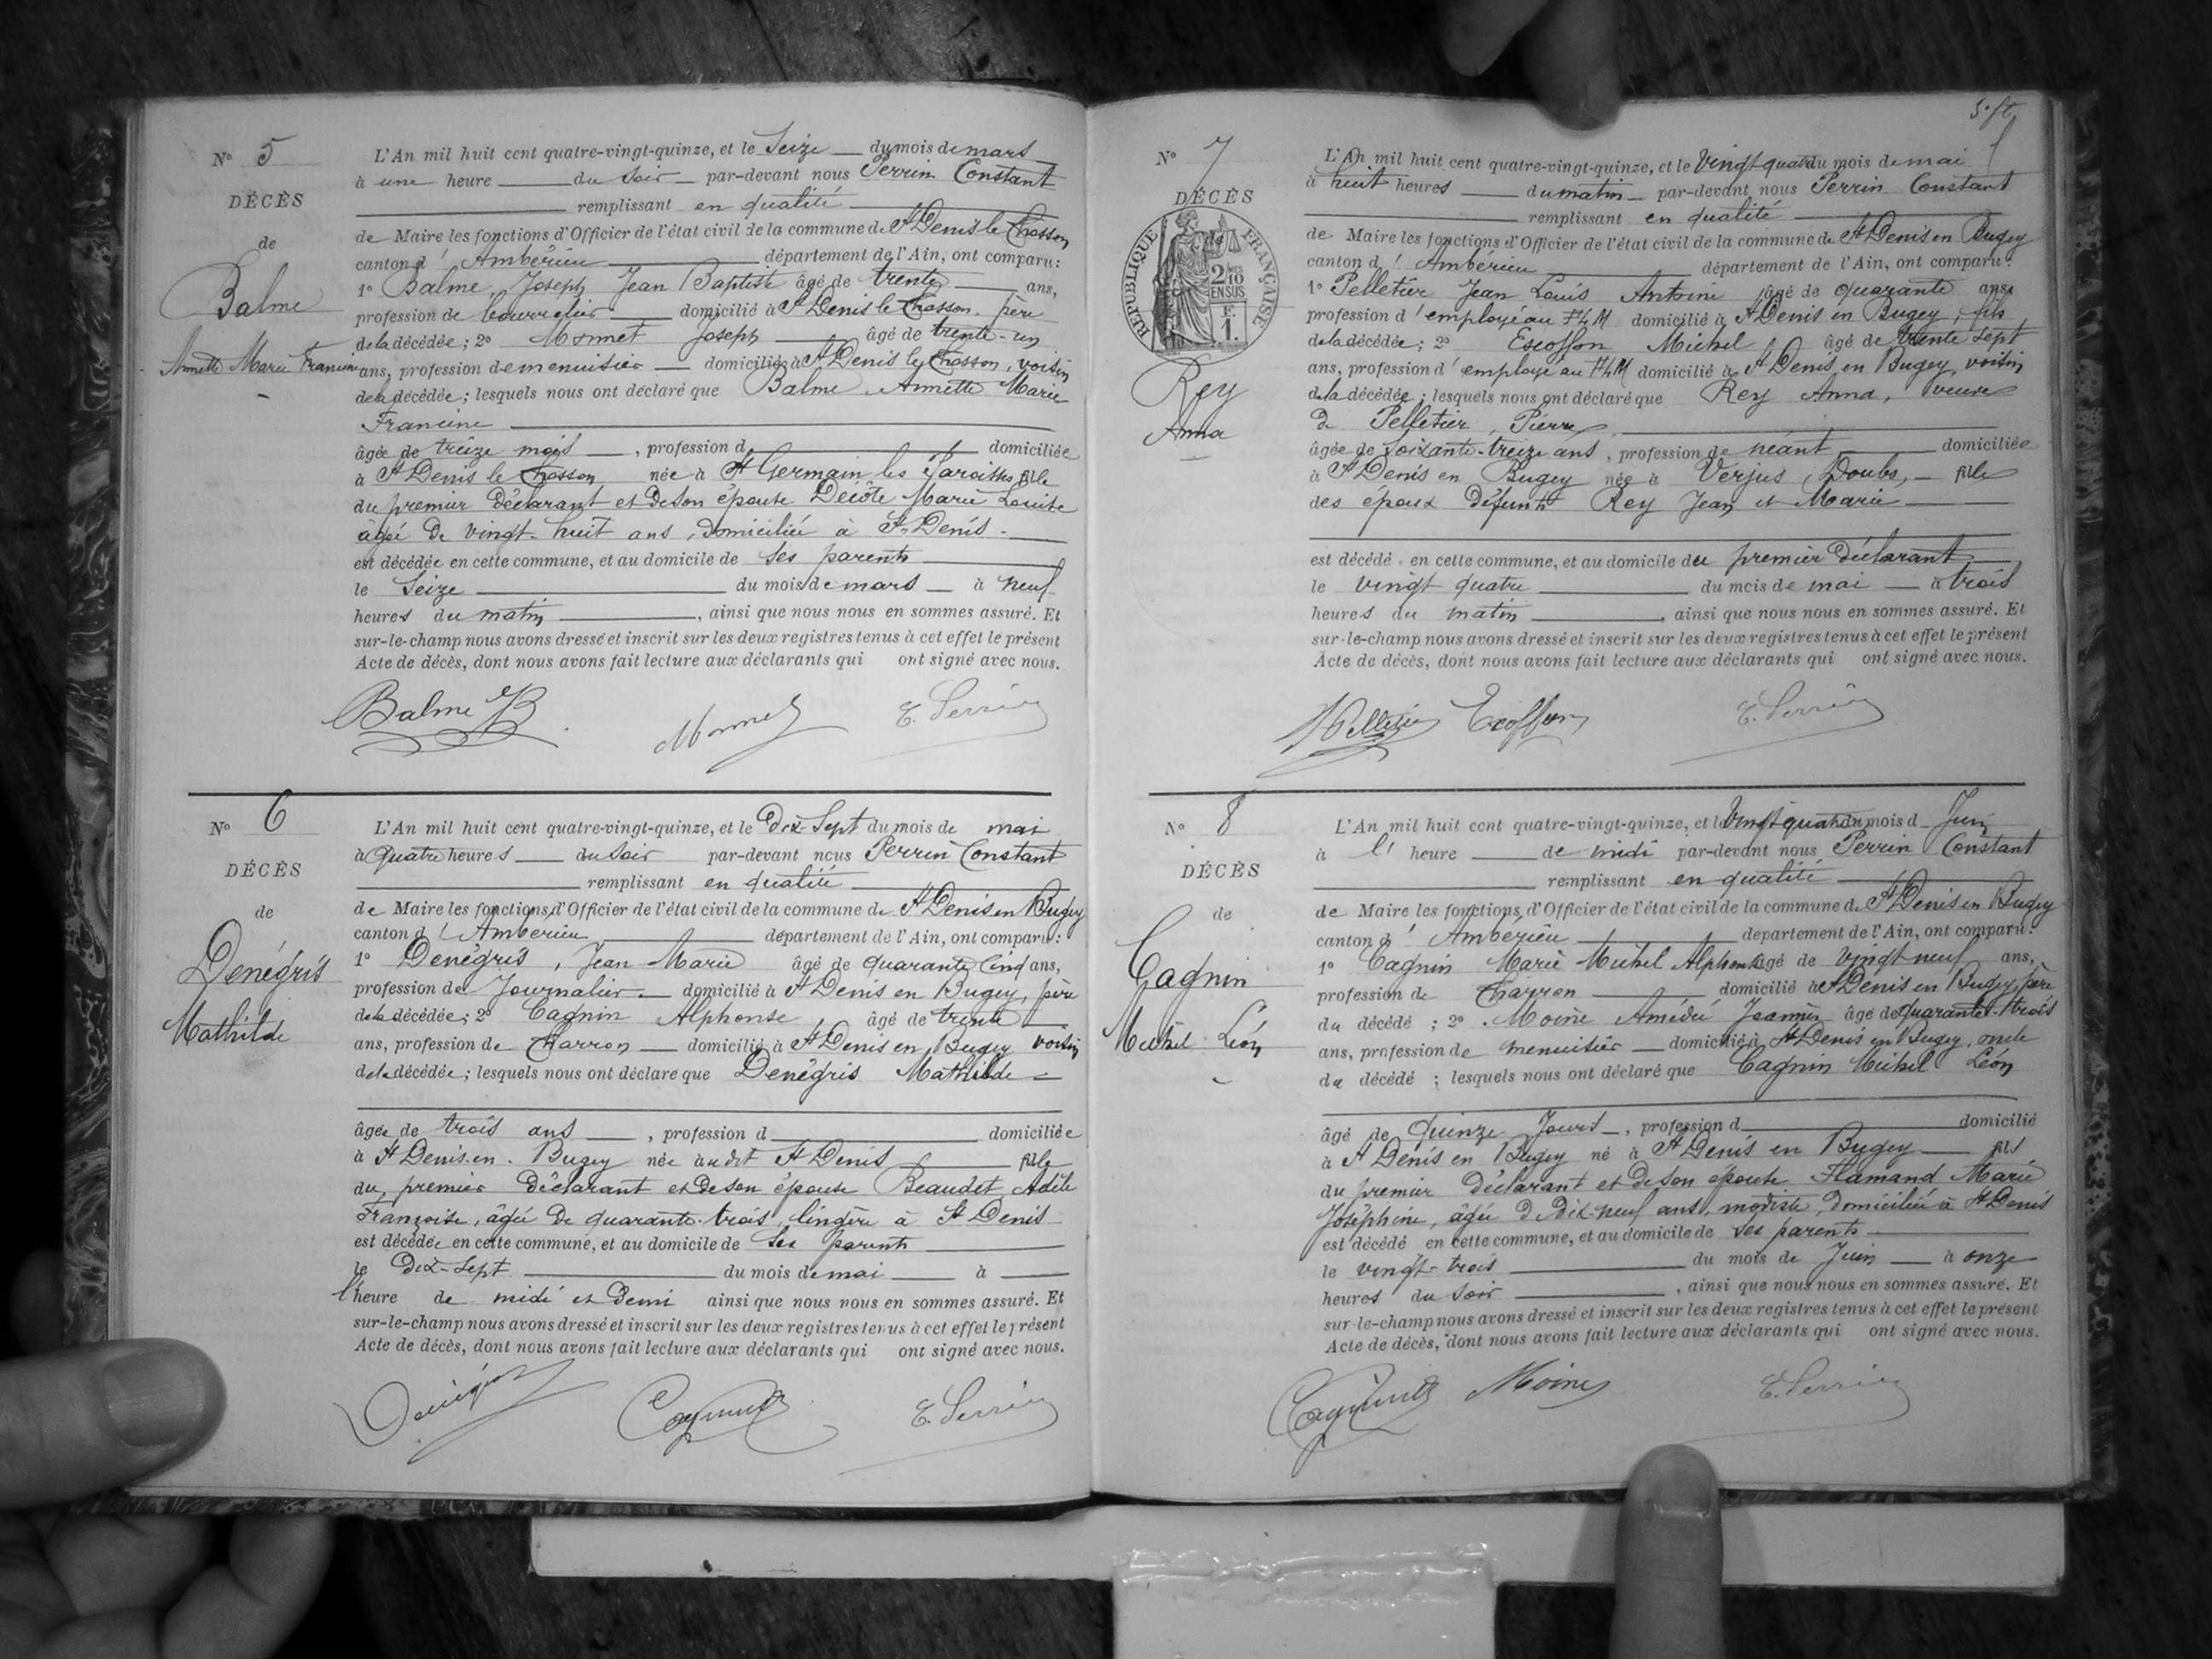 N° 5
DÉCÈS
de
Balme
Annette Marie Francine
L'An mil huit cent quatre-vingt-quinze, et le Seize du mois de mars
à une heure du soir par-devant nous Perrin Constant
remplissant en qualité
de Maire les fonctions d'Officier de l'état civil de la commune de St Denis le Chosson
canton d' Ambérieu département de l'Ain, ont comparu:
1° Balme, Joseph Jean Baptiste âgé de trente ans,
profession de bourrelier domicilié à St Denis le Chosson, père
de la décédée; 2° Monnet Joseph âgé de trente-un
ans, profession de menuisier domicilié à St Denis le Chosson, voisin
de la décédée; lesquels nous ont déclaré que Balme Annette Marie
Francine
âgée de treize mois, profession d domiciliée
à St Denis le Chosson née à St Germain les Paroisses fille
du premier déclarant et de son épouse Décôte Marie Louise
âgée de vingt-huit ans, domiciliée à St Denis.
est décédée en cette commune, et au domicile de ses parents
le Seize du mois de mars à neuf
heures du matin, ainsi que nous nous en sommes assuré. Et
sur-le-champ nous avons dressé et inscrit sur les deux registres tenus à cet effet le présent
Acte de décès, dont nous avons fait lecture aux déclarants qui ont signé avec nous.
Balme JB Monnet C. Perrin
N° 6
DÉCÈS
de
Dénégris
Mathilde
L'An mil huit cent quatre-vingt-quinze, et le Dix-Sept du mois de mai
à quatre heures du soir par-devant nous Perrin Constant
remplissant en qualité
de Maire les fonctions d'Officier de l'état civil de la commune de St Denis en Bugey
canton d' Ambérieu département de l'Ain, ont comparu:
1° Dénégris, Jean Marie âgé de quarante cinq ans,
profession de Journalier domicilié à St Denis en Bugey, père
de la décédée; 2° Cagnin Alphonse âgé de trente
ans, profession de charron domicilié à St Denis en Bugey voisin
de la décédée; lesquels nous ont déclaré que Dénégris Mathilde
âgée de trois ans, profession d domiciliée
à St Denis en Bugey née audit St Denis fille
du premier déclarant et de son épouse Beaudet Adèle
Françoise, âgée de quarante-trois, lingère à St Denis
est décédée en cette commune, et au domicile de ses parents
le Dix-Sept du mois de mai à
l'heure de midi et demi ainsi que nous nous en sommes assuré. Et
sur-le-champ nous avons dressé et inscrit sur les deux registres tenus à cet effet le présent
Acte de décès, dont nous avons fait lecture aux déclarants qui ont signé avec nous.
C. Perrin
N° 7
DÉCÈS
de
RÉPUBLIQUE FRANÇAISE
2/10 EN SUS
F. 1.
Rey
Anna
L'An mil huit cent quatre-vingt-quinze, et le Vingt quatre du mois de mai
à huit heures du matin par-devant nous Perrin Constant
remplissant en qualité
de Maire les fonctions d'Officier de l'état civil de la commune de St Denis en Bugey
canton d' Ambérieu département de l'Ain, ont comparu:
1° Pelletier Jean Louis Antoine âgé de quarante ans
profession d' employé au domicilié à St Denis en Bugey, fils
de la décédée; 2° Escoffon Michel âgé de trente sept
ans, profession d' employé au domicilié à St Denis en Bugey, voisin
de la décédée; lesquels nous ont déclaré que Rey Anna, veuve
de Pelletier, Pierre,
âgée de Soixante-treize ans, profession de néant domiciliée
à St Denis en Bugey née à Verjus, Doubs, fille
des époux défunts Rey Jean et Marie
est décédé en cette commune, et au domicile du premier déclarant
le vingt quatre du mois de mai à trois
heures du matin, ainsi que nous nous en sommes assuré. Et
sur-le-champ nous avons dressé et inscrit sur les deux registres tenus à cet effet le présent
Acte de décès, dont nous avons fait lecture aux déclarants qui ont signé avec nous.
Pelletier Escoffon C. Perrin
N° 8
DÉCÈS
de
Cagnin
Michel Léon
L'An mil huit cent quatre-vingt-quinze, et le Vingt quatre du mois d Juin
à l' heure de midi par-devant nous Perrin Constant
remplissant en qualité
de Maire les fonctions d'Officier de l'état civil de la commune de St Denis en Bugey
canton d' Ambérieu département de l'Ain, ont comparu:
1° Cagnin Marie Michel Alphonse âgé de vingt neuf ans,
profession de Charron domicilié à St Denis en Bugey, père
du décédé; 2° Moine Amédée Joannès âgé de quarante-trois
ans, profession de menuisier domicilié à St Denis en Bugey, oncle
du décédé; lesquels nous ont déclaré que Cagnin Michel Léon
âgé de quinze Jours, profession d domicilié
à St Denis en Bugey né à St Denis en Bugey fils
du premier déclarant et de son épouse Flamand Marie
Joséphine, âgée de dix-neuf ans, modiste, domiciliée à St Denis
est décédé en cette commune, et au domicile de ses parents
le vingt-trois du mois de Juin à onze
heures du soir, ainsi que nous nous en sommes assuré. Et
sur-le-champ nous avons dressé et inscrit sur les deux registres tenus à cet effet le présent
Acte de décès, dont nous avons fait lecture aux déclarants qui ont signé avec nous.
Moine C. Perrin